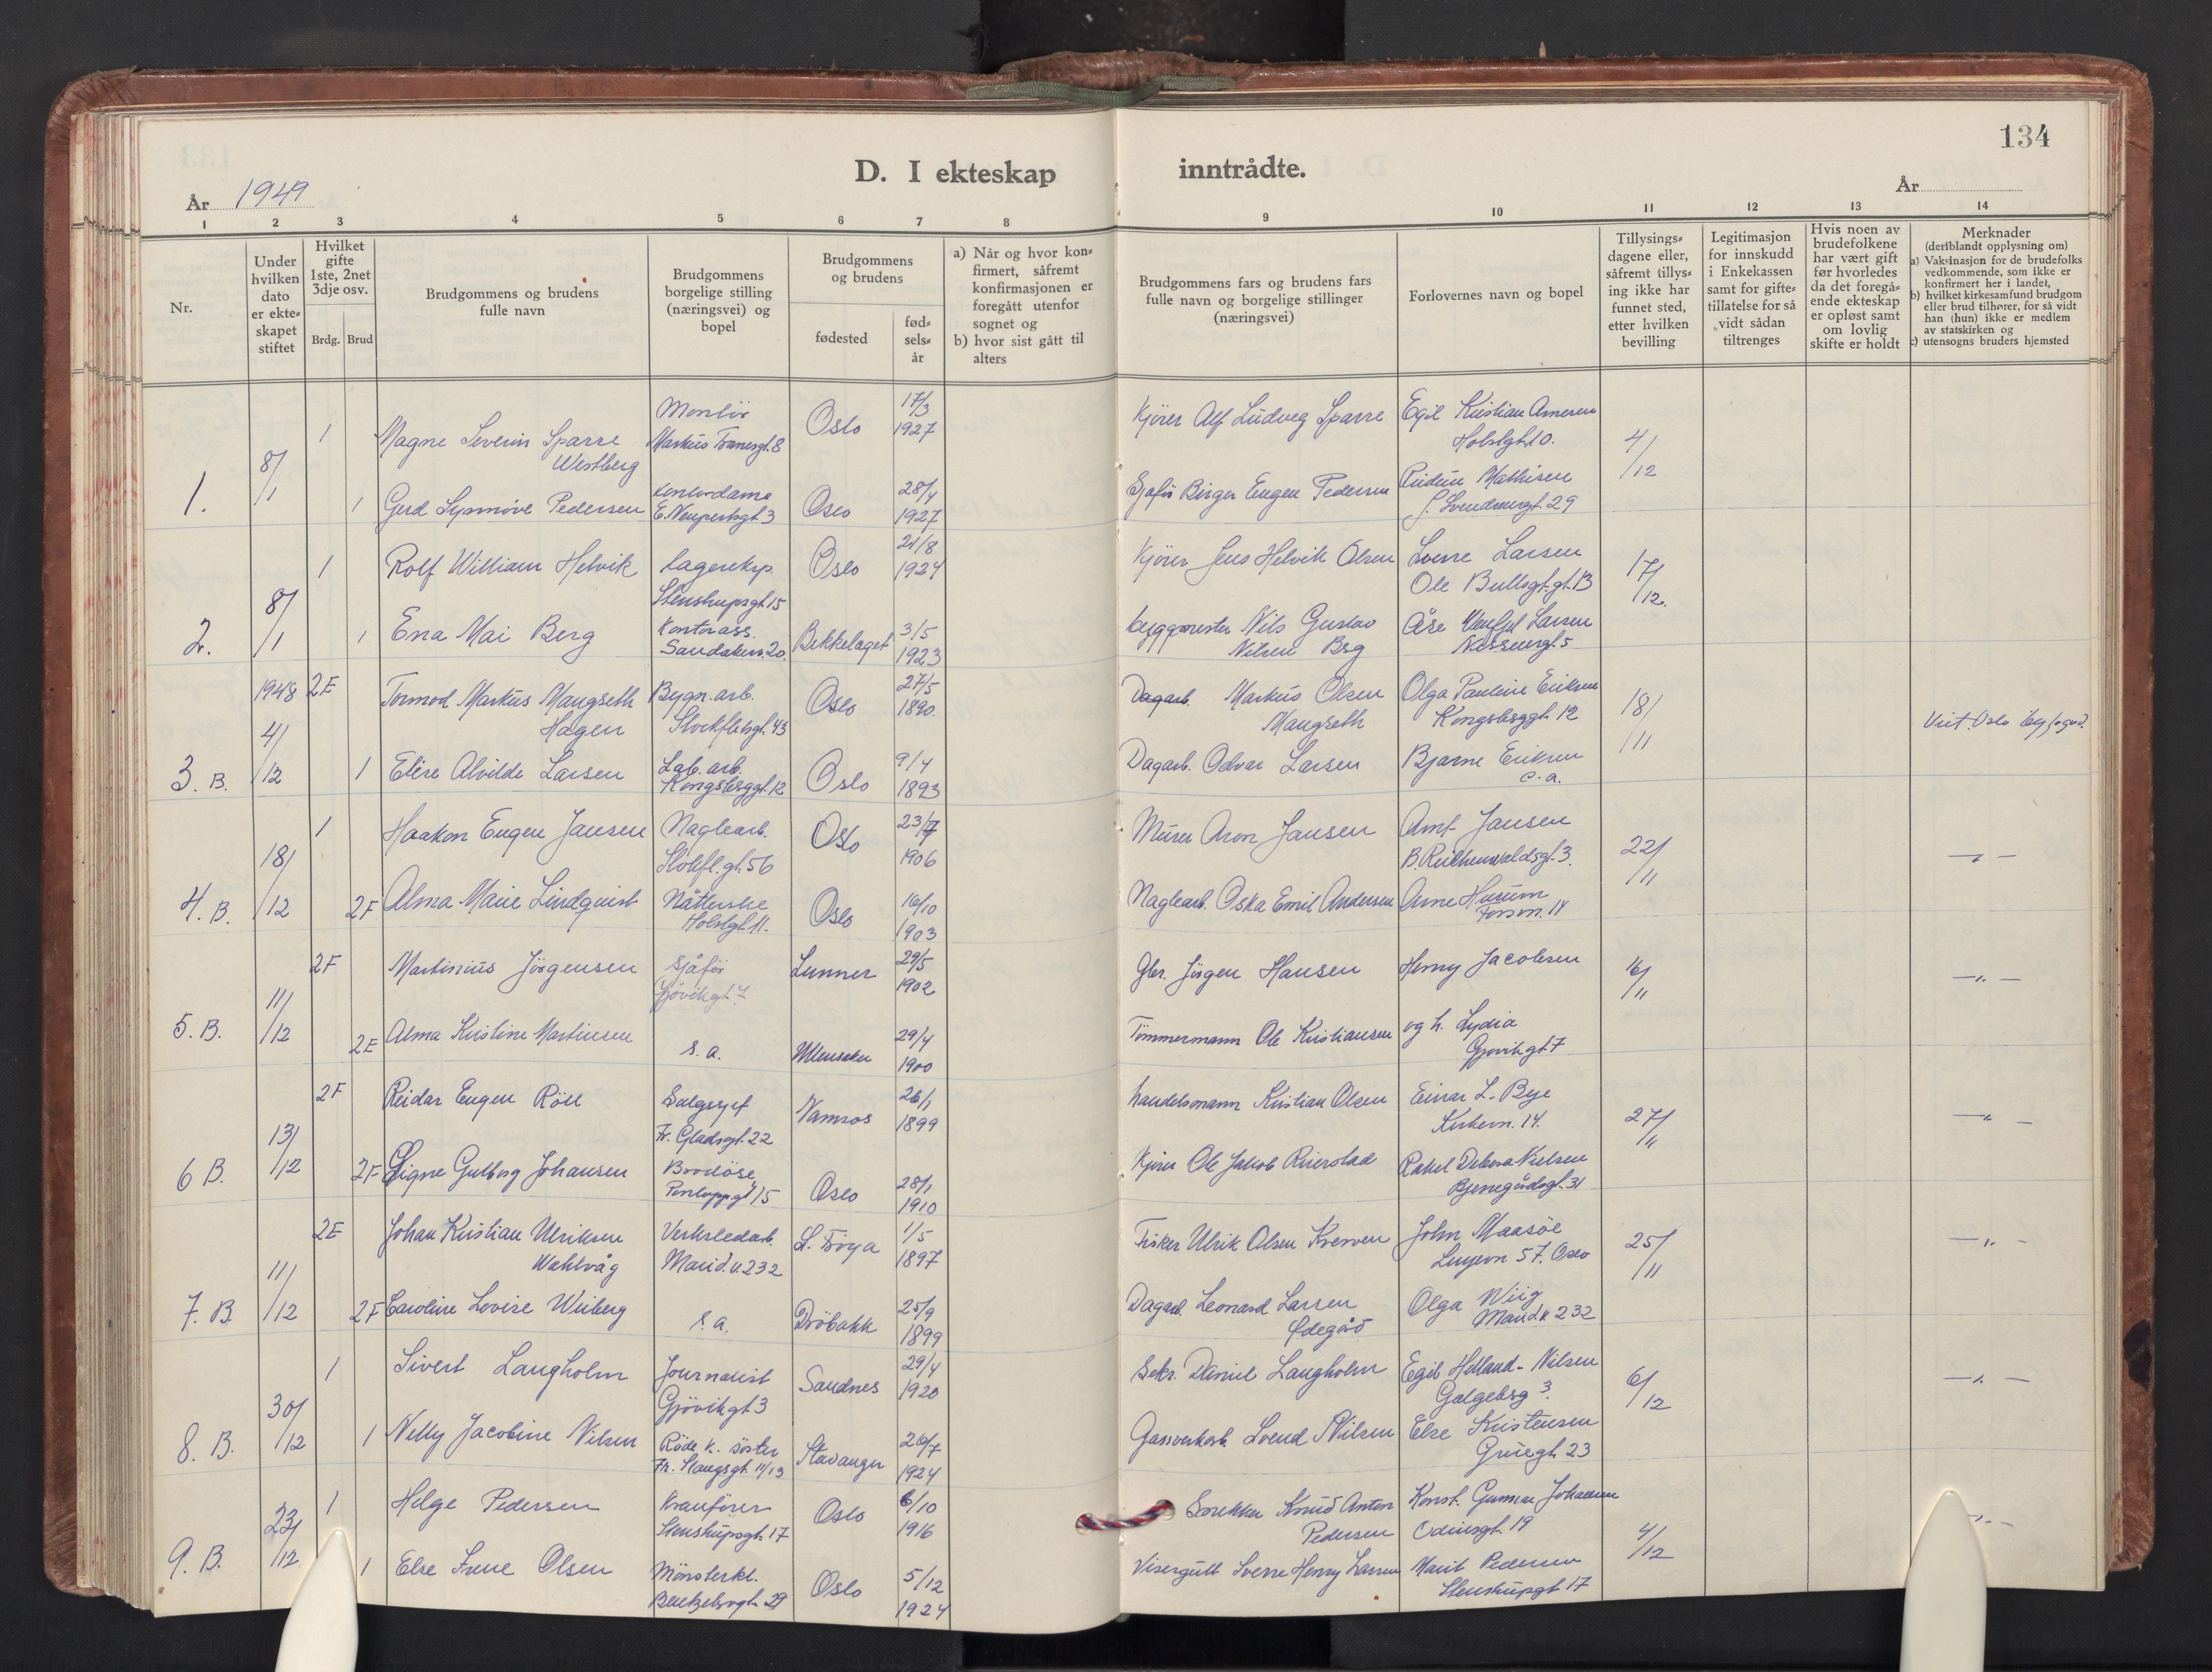 134
D. I ekteskap inntrådte.
År 1949
År
1 2 3 4 5 6 7 8 9 10 11 12 13 14
Nr.
Under hvilken dato er ekteskapet stiftet
Hvilket gifte 1ste, 2net 3dje osv.
Brdg. Brud
Brudgommens og brudens fulle navn
Brudgommens borgelige stilling (næringsvei) og bopel
Brudgommens og brudens
fødested
fødselsår
a) Når og hvor konfirmert, såfremt konfirmasjonen er foregått utenfor sognet og
b) hvor sist gått til alters
Brudgommens fars og brudens fars fulle navn og borgelige stillinger (næringsvei)
Forlovernes navn og bopel
Tillysingsdagene eller, såfremt tillysing ikke har funnet sted, etter hvilken bevilling
Legitimasjon for innskudd i Enkekassen samt for giftetillatelse for så vidt sådan tiltrenges
Hvis noen av brudefolkene har vært gift før hvorledes da det foregående ekteskap er opløst samt om lovlig skifte er holdt
Merknader
(deriblandt opplysning om)
a) Vaksinasjon for de brudefolks vedkommende, som ikke er konfirmert her i landet,
b) hvilket kirkesamfund brudgom eller brud tilhører, for så vidt han (hun) ikke er medlem av statskirken og
c) utensogns bruders hjemsted
1. 8/1
1 Magne Severin Sparre Westberg
Montør Markus Tranesgt. 8
Oslo 17/3 1927
Kjører Alf Ludvig Sparre
Egil Kristian Arnesen Holstgt. 10.
4/12
1 Gerd Synnøve Pedersen
Kontordame E. Neupertsgt. 3
Oslo 28/4 1927
Sjafør Birger Eugen Pedersen
Mathisen J. Svendsensgt. 29
2. 8/1
1 Rolf William Helvik
Lagereksp. Stenstrupsgt. 15
Oslo 21/8 1924
Kjører Jens Helvik Olsen
Sverre Larsen Ole Bullsgt. gt. 13
17/12.
1 Ena Mai Berg
Kontorass. Sandakerv. 20.
Bekkelaget 3/5 1923
byggmester Nils Gustav Nilsen Brg
Åse Larsen Nissensgt. 5
3. B. 1948 4/12
2E Tormod Markus Maugseth Hagen
Bygn. arb. Stockfletsgt. 43
Oslo 27/5 1890.
Dagarb. Markus Olsen Maugseth
Olga Pauline Eriksen Kongsberggt. 12
18/11
Viet. Oslo byfogd.
1 Elise Alvilde Larsen
Lab. arb. Kongsberggt. 12
Oslo 9/4 1893
Dagarb. Odvar Larsen
Bjarne Eriksen c. a.
4. B. 18/12
1 Haakon Eugen Jansen
Naglearb. Stokfl. gt. 56
Oslo 23/7 1906
Murer Aron Jansen
Arnt Jansen B. Reichenwaldsgt. 3.
22/11
— „ —
2F Alma Marie Lindquist
Nåtterske Holstgt. 11.
Oslo 16/10 1903
Naglearb. Oska Emil Andersen
Arne Husum
5. B. 11/12
2F Martinius Jörgensen
Sjåför Gjövikgt. 7
Lunner 29/5 1902
Gbr. Jörgen Hansen
Henry Jacobsen
16/11
— „ —
2E Alma Kristine Martinsen
s. a.
Ullensaker 29/4 1900
Tømmermann Ole Kristiansen
og h. Lydia Gjøvikgt. 7
6 B. 13/12
2F Reidar Eugen Röll
Salgssjef Fr. Gladsgt. 22
Namsos 26/1 1899
handelsmann Kristian Olsen
Einar L. Bye Kirkevn. 14.
27/11
— „ —
2F Signe Gulborg Johansen
15
Oslo 28/1 1910
Kjører Ole Jakob Ruerstad
Rakel Debora Nielsen Bjerregårdsgt. 31
7. B 11/12
2E Johan Kristian Ulriksen Wahlvåg
Verkstedarb. Marid. v. 232
S. Tröya 1/5 1897
Fisker Ulrik Olsen Kverven
John Maasöe 57. Oslo
25/11
— „ —
2F Caroline Lovise Wiiberg
s. a.
Dröbakk 25/9 1899
Dagarb. Leonard Larsen Ødegård
Olga Wiig Marid. v. 232
8. B. 30/12
1 Sivert Langholm
Journalist Gjövikgt. 3
Sandnes 29/4 1920
Sekr. Daniel Langholm
Egil Helland-Nilsen Galgeberg 3.
6/12
— „ —
1 Nelly Jacobine Nilsen
Røde k. söster Fr. Stangsgt. 11/13
Stavanger 26/7 1924
Gassverksarb. Svend Nilsen
Else Kristensen Grüegt. 23
9. B. 23/12
1 Helge Pedersen
Kranförer Stenstrupsgt. 17
Oslo 6/10 1916
Snekker Knud Anton Pedersen
Konst. Gunnar Johansen Odinsgt. 19
4/12
— „ —
1 Else Irene Olsen
Mönsterkl. Bentzebrogt. 29
Oslo 5/12 1924
Visergutt Sverre Henry Larsen
Marit Pedersen Stenstrupgt. 17